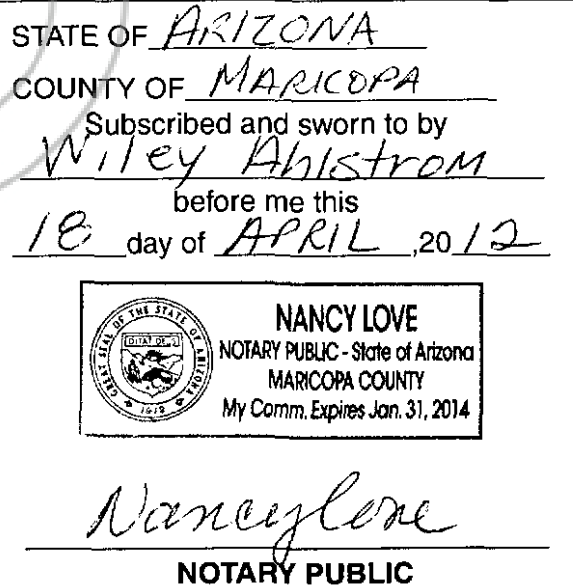 STATE OF ARIZONA
COUNTY OF MARICOPA
Subscribed and sworn to by
Wiley Ahlstrom
before me this
18 day of APRIL ,2012
GREAT SEAL OF THE STATE OF ARIZONA
DITAT DEUS
1912
NANCY LOVE
NOTARY PUBLIC - State of Arizona
MARICOPA COUNTY
My Comm. Expires Jan. 31, 2014
Nancy Love
NOTARY PUBLIC